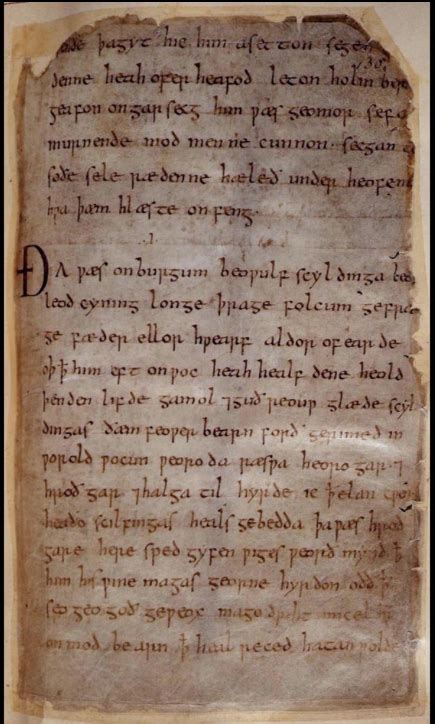 þagyt hie him asetton segen
denne heah ofer heafod leton holm ber
geafon ongar secg him ƿæs geomor sefa
murnende mod men ne cunnon · secgan
soðe sele rædenne hæleð under heofenu
hƿa þæm hlæste onfeng·
·I·
ÐA ƿæs onburgum beoƿulf scyldinga
leod cyning longe þrage folcum gefræ
ge fæder ellor hƿearf aldor of earde
oþ ꝥ him eft onƿoc heah healf dene heold
þenden lifde gamol ⁊ guð reouƿ glæde scyl
dingas ðæm feoƿer bearn forð gerimed in
ƿorold ƿocun ƿeoroda ræsƿa heoro gar · ⁊
hroð gar ⁊ halga til hyrde ic ꝥ elan cƿen
heaðo scilfingas heals gebedda þa ƿæs hroð
gare here sped gyfen ƿiges ƿeorð mynd ꝥ
him his ƿine magas georne hyrdon oðð ꝥ
seo geo goð geƿeox mago driht micel him
on mod bearn ꝥ heal reced hatan ƿolde